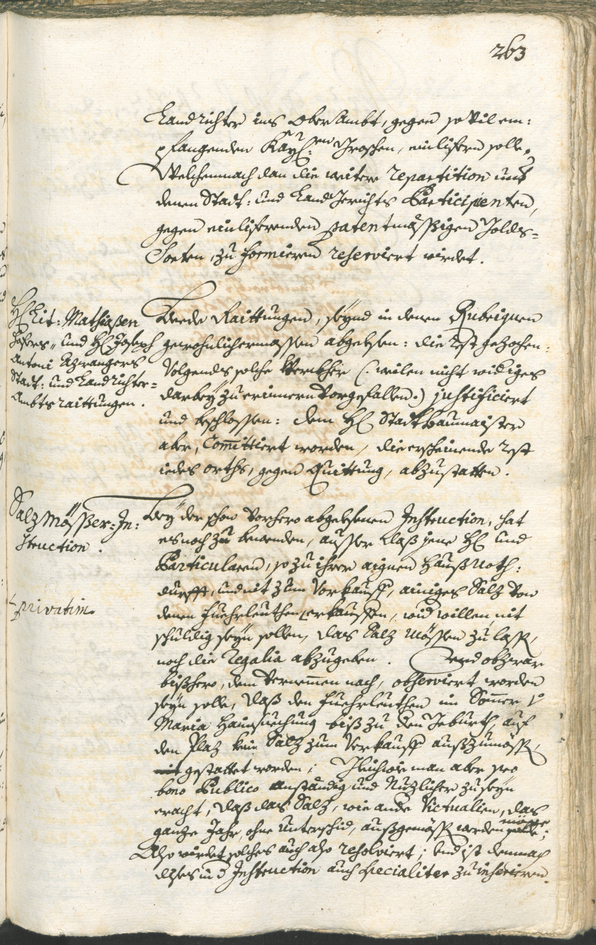 263
Landrichter ins Ober Ambt, gegen sovil em:
pfangenden Kay: Groschen, einlifern solle,
Welchemnach dan die weitere repartition undter
denen Statt: und Landtgerichts Participenten,
gegen einlifernden patentmässigen Goldts=
Sorten, zu formieren reserviert wirdet.
Hr Lit: Mathiasen
und Hr Joseph
Antoni Azwangers
Statt: und Landrichter=
Ambts raittungen.
Beede Raittungen, seynd in denen Rubriquen
gewohnlichermassen abgelesen: die rest gezochen:
Volgendts solche Vorther (: weilen nicht widriges
darbey zu erinern vorgefallen :) justificiert
und beschlossen: dem Hr Stattbaumaister
aber, Committiert worden, die erscheinende rest
iedes orths, gegen Quittung, abzustatten.
Salz Mösser=In:
struction.
Bey der schon vorhero abgelesenen Instruction, hat
es noch zu bewenden, ausser dass jene Hr und
Particularen, so zu ihrer aignen Haussnoth:
durfft, und nit zum Verkauff, ainiges Salz von
denen Fuehrleuthen erkauffen, und willen, nit
privatim
schuldig seyn sollen, das Salz mössen zu lassen,
noch die Regalia abzugeben. Und obzwar
bisshero, dem Vernemmen nach, observiert worden
seyn solle, dass den Fuehrleuthen im Sommer
Maria Haimbsuechung biss zu der Geburth auf
den Plaz kein Salz zum Verkauff ausszumössen
gestattet worden; Nachdeme man aber pro
bono Publico anständig und Nuzlicher zu seyn
eracht, dass das Salz, wie andre Victualien, das
ganze Jahr, ohne Unterschid, aussgemössen werden möge;
Also wirdet solches auch also resolviert; und ist demnach
dises in der Instruction auch specialiter zu inserieren.